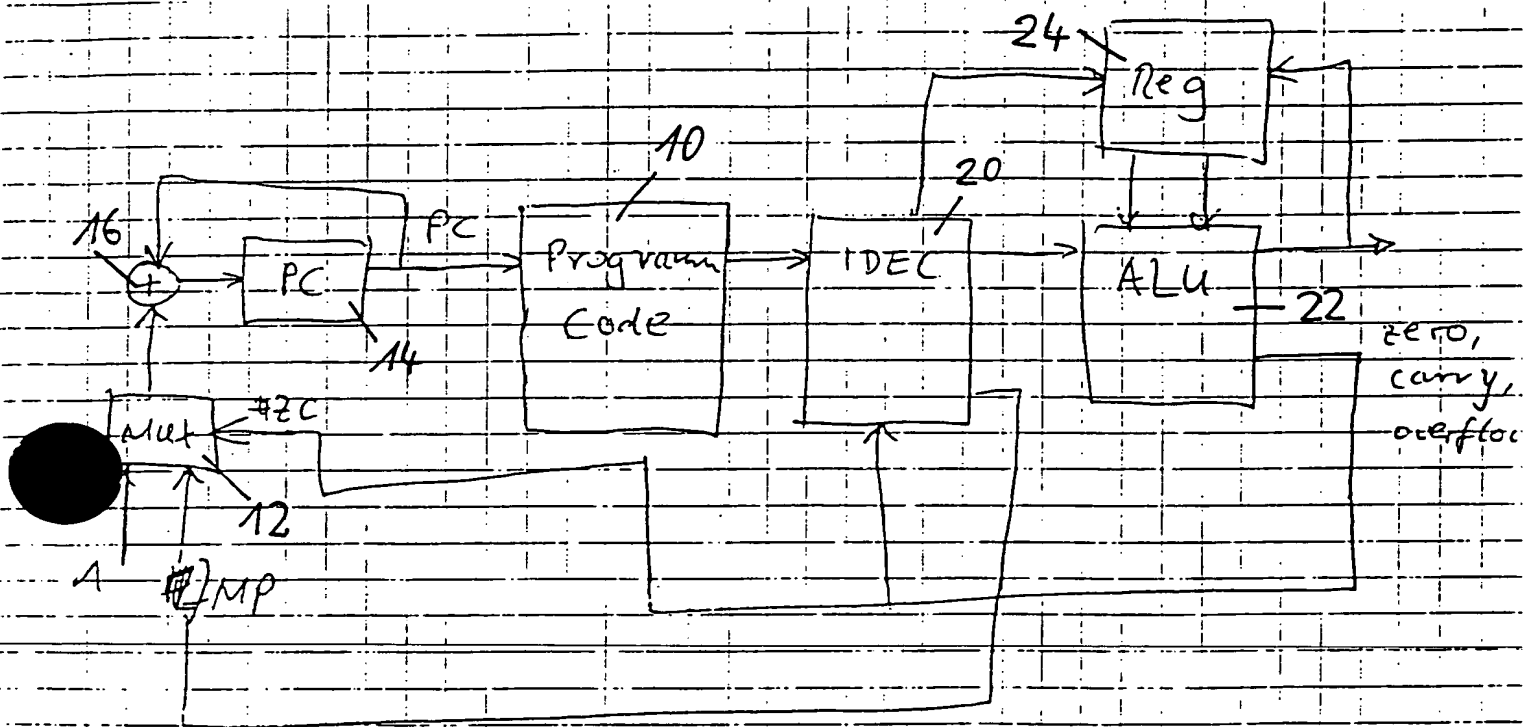 24
Reg
10
20
16
PC
PC
Programm
Code
IDEC
ALU
22
14
zero,
carry,
overflo
Mux
ZC
12
1
JMP